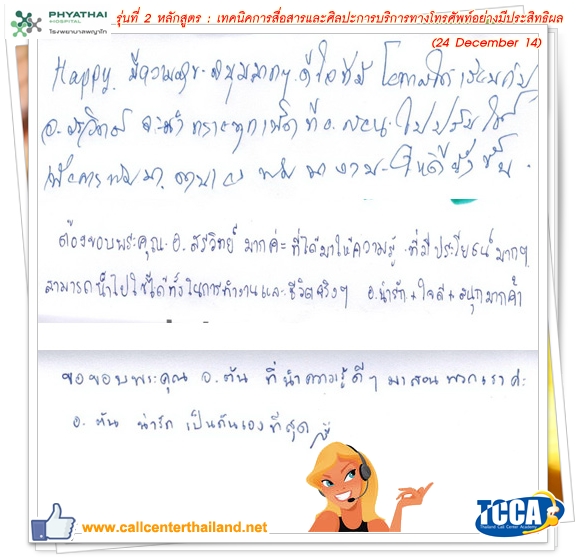 PHYATHAI
HOSPITAL
โรงพยาบาลพญาไท
รุ่นที่ 2 หลักสูตร : เทคนิคการสื่อสารและศิลปะการบริการทางโทรศัพท์อย่างมีประสิทธิผล
(24 December 14)
Happy มีความสุข สนุกมากๆ ดีใจที่มีโอกาสได้เรียนกับ
อ. สรวิทย์ จะนำ ที่ อ. สอน ไปปรับใช้
เพื่อการพัฒนา งาน ให้ดียิ่งขึ้น
ต้องขอบพระคุณ อ. สรวิทย์ มากค่ะ ที่ได้มาให้ความรู้ ที่มีประโยชน์มากๆ
สามารถนำไปใช้ได้ทั้งในการทำงานและชีวิตจริงๆ อ.น่ารัก + ใจดี + สนุกมากค่ำ
ขอขอบพระคุณ อ. ตัน ที่นำความรู้ดีๆ มาสอนพวกเราค่ะ
อ. ตัน น่ารัก เป็นกันเองที่สุด
www.callcenterthailand.net
TCCA
Thailand Call Center Academy